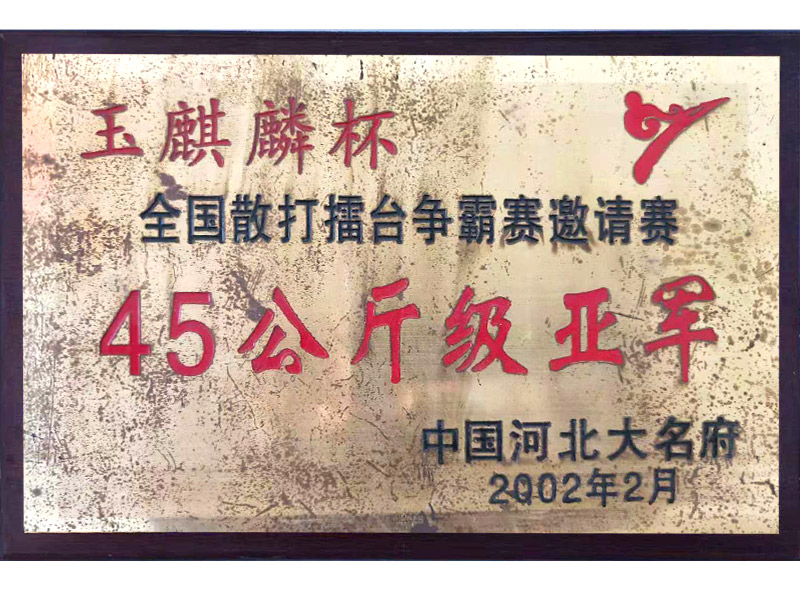 玉麒麟杯
全国散打擂台争霸赛邀请赛
45公斤级亚军
中国河北大名府
2002年2月